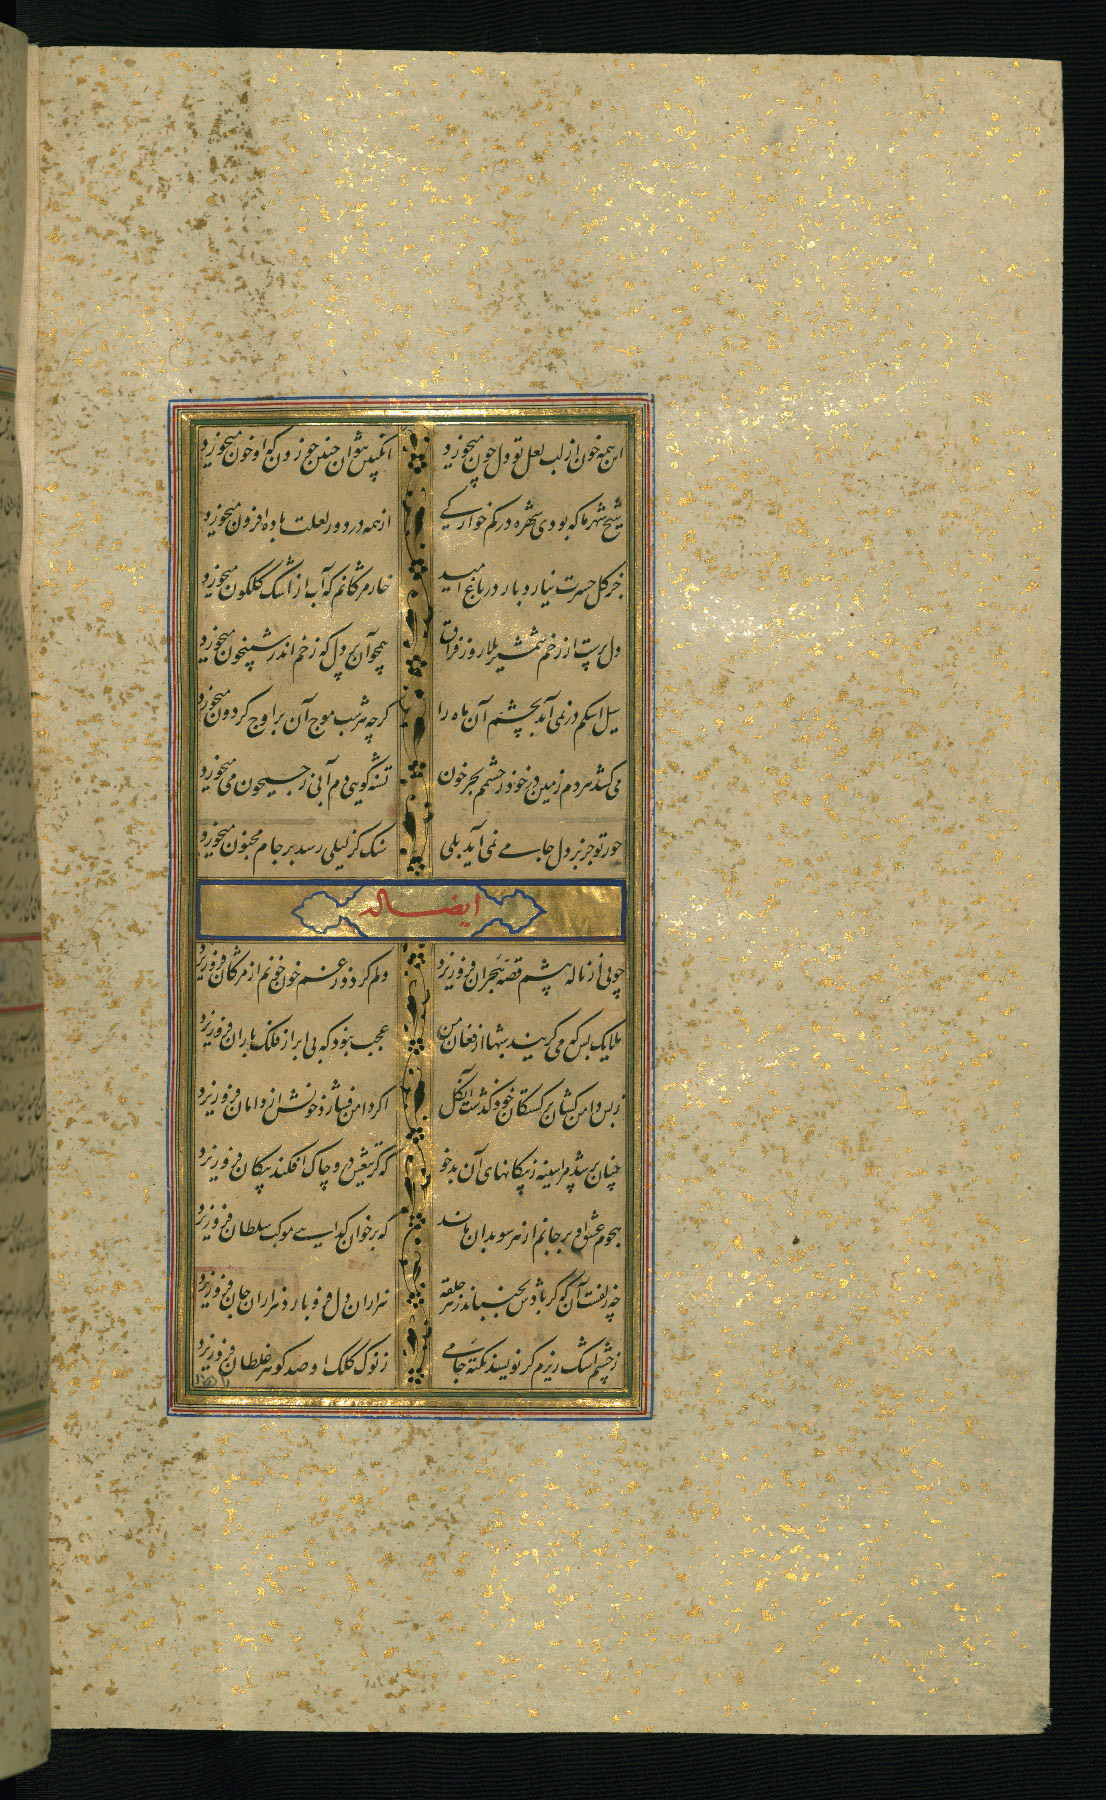 این همه خون از لب لعل تو دل چون میخورد
آنکس نتوان چنین خوردن که او خون میخورد
شیخ شهر ما که بودی شهره در کم خوارکی
از همه در دور لعلت باده افزون میخورد
جز کل حسرت نیارد بار در باغ امید
خار مژکانم که آب از اشک کلکون میخورد
دل پرست از زخم شمشیر بلا روز فراق
همچو آن پر دل که زخم اندر شبیخون میخورد
سیل اشکم در نمی آید بچشم آن ماه را
کرچه هر شب موج آن بر اوج کردون میخورد
می کشد مردم زمین در خود ز چشمم بحر خون
تشنه کویی دم آبی ز جیحون می خورد
جور تو جز بر دل جامی نمی آید بلی
سنک کز لیلی رسد بر جام مجنون میخورد
ایضا له
چو نی از ناله هستم قصه هجران فرو ریزد
دلم کردد ز غم خون خونم از مژکان فرو ریزد
ملایک بس که می کریند شبها از فغان من
عجب نبود که بی ابر از فلک باران فرو ریزد
ز بس دامن کشان بر کشتکان خود کذشت آن کل
اکر دامن فشارد خونش از دامان فرو ریزد
چنان پر شد مرا سینه ز پیکانهای آن بدخو
که کر تیغش در و چاک افکند پیکان فرو ریزد
هجوم عشق او بر جانم از هر سو بدان ماند
که بر خوان کدایی موکب سلطان فرو ریزد
چه زلفست آن که کر بادش بجنباند ز هر حلقه
هزاران دل فرو بارد هزاران جان فرو ریزد
ز چشم اشک ریزم کر نویسد نکته جامی
ز نوک کلک او صد کوهر غلطان فرو ریزد